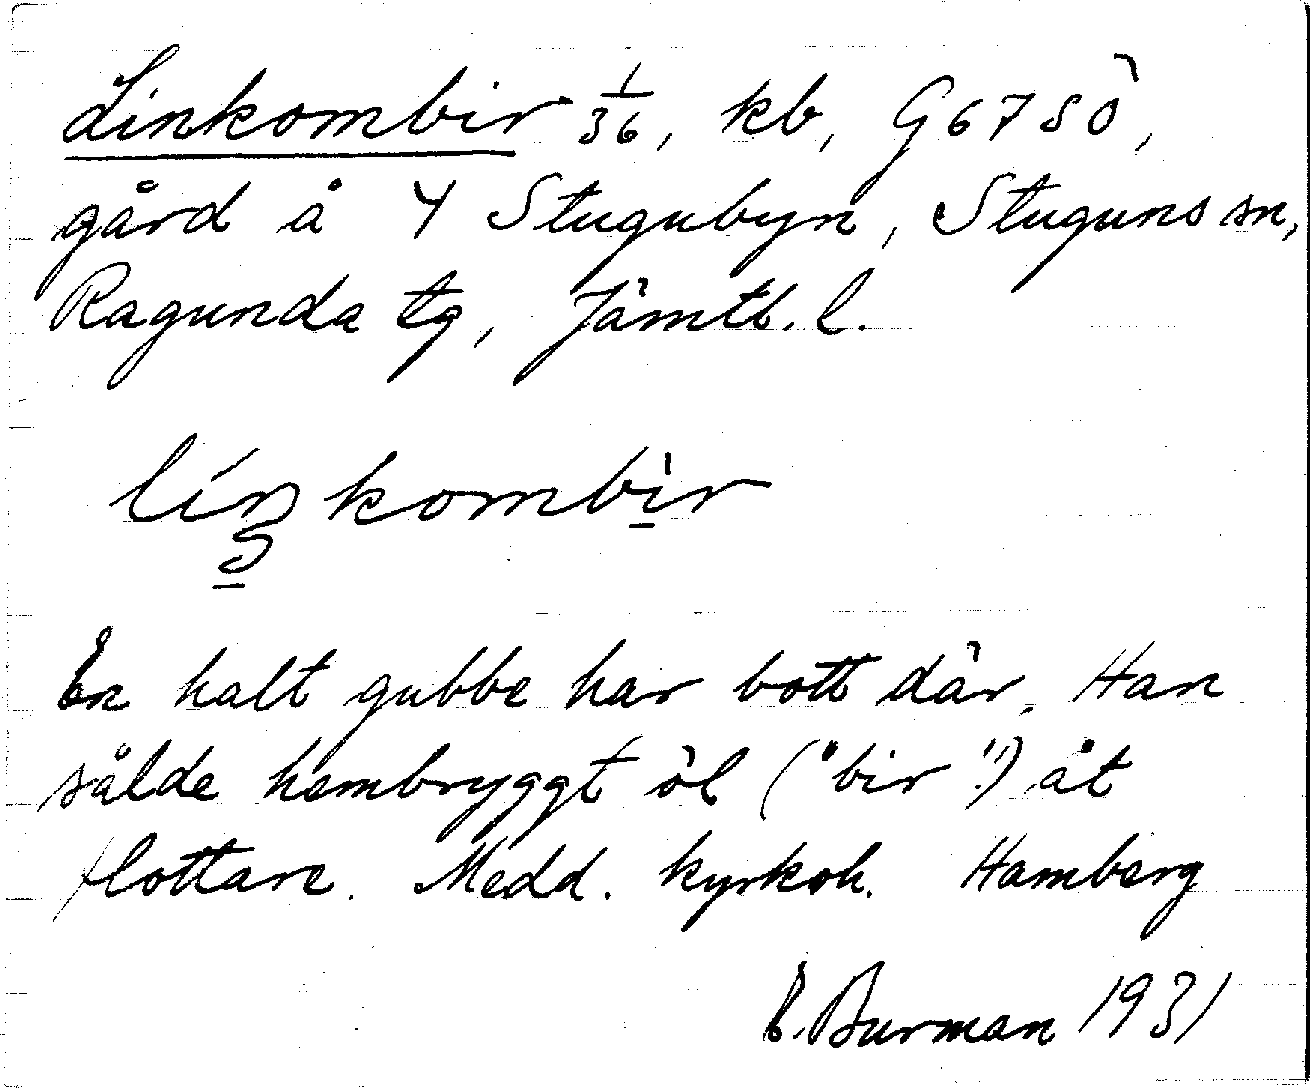 Linkombir 1/36, kb, G67SÖ,
gård å 4 Stugubyn, Stuguns sn,
Ragunda tg, Jämtl. l.
líŋkombìr
En halt gubbe har bott där. Han
sålde hembryggt öl ("bir") åt
flottare. Medd. kyrkoh. Hamberg
E. Burman 1931